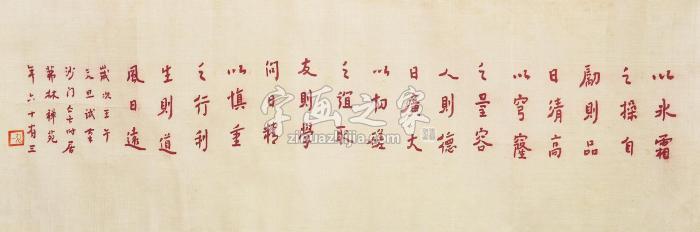 以冰霜
之操自
勵則品
日清高
以穹窿
之量容
人則德
日廣大
以切磋
之誼取
友則學
問日精
以慎重
之行利
生則道
風日遠
歲次壬午
元旦試筆
沙門時居
茀林禅苑
年六十有三
字画之家